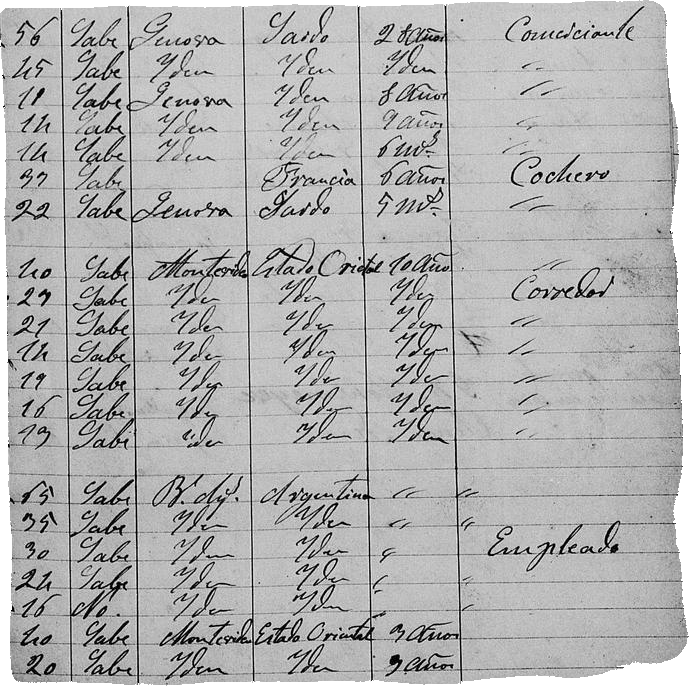 56 Sabe Genova Sardo 28 años Comerciante
45 Sabe Yden Yden Yden "
11 Sabe Genova Yden 8 años "
14 Sabe Yden Yden 9 años "
14 Sabe Yden Yden 6 ms. "
37 Sabe Francia 6 años Cochero
22 Sabe Genova Sardo 5 ms. "
40 Sabe Montevideo Estado Oriental 10 año "
27 Sabe Yden Yden Yden Corredor
21 Sabe Yden Yden Yden "
14 Sabe Yden Yden Yden "
19 Sabe Yden Yden Yden "
16 Sabe Yden Yden Yden "
13 Sabe Yden Yden Yden "
65 Sabe Bs. Ays. Argentina " "
35 Sabe Yden Yden " "
30 Sabe Yden Yden " Empleado
24 Sabe Yden Yden " "
16 No. Yden Yden " "
40 Sabe Montevideo Estado Oriental 3 años
20 Sabe Yden Yden 3 años